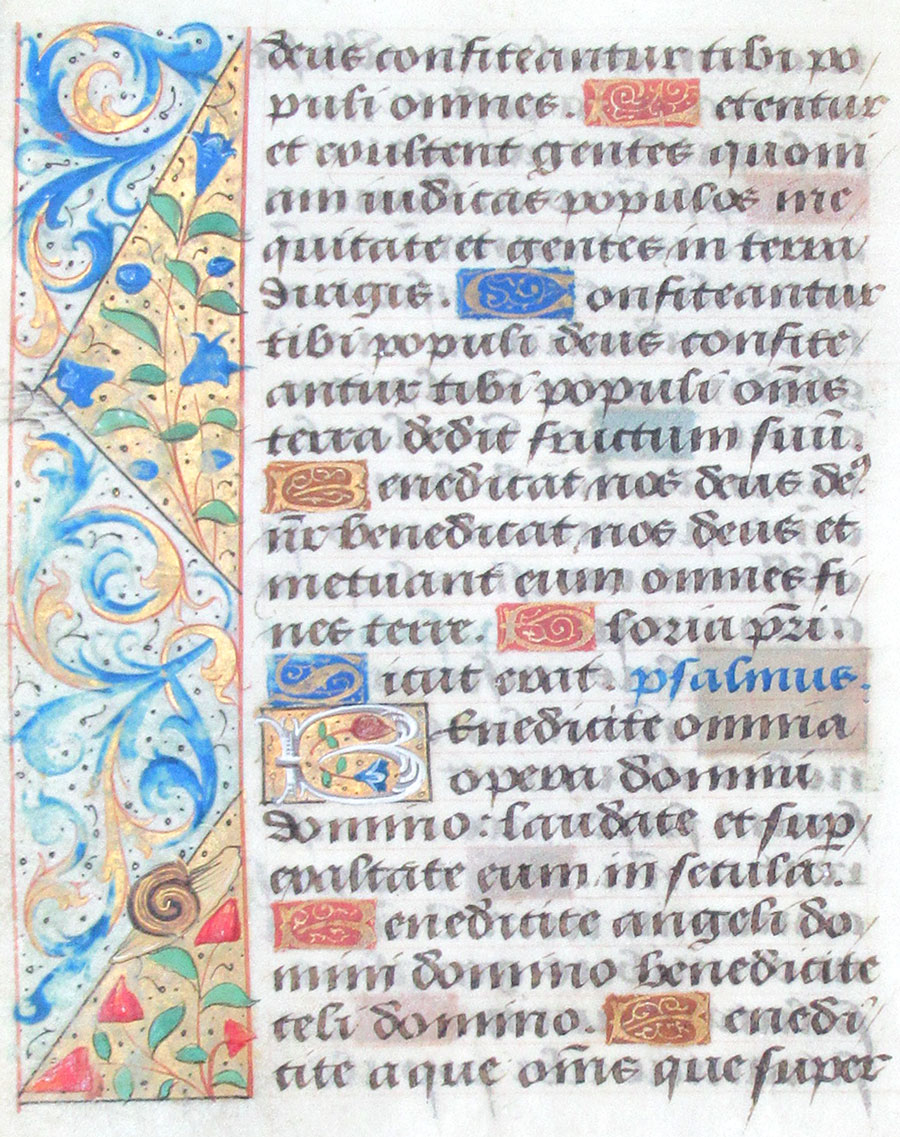 deus confiteantur tibi po/
puli omnes. Letentur
et exultent gentes quoni
am iudicas populos in e
quitate et gentes in terra
dirigis. Confiteantur
tibi populi deus confite/
antur tibi populi om̄s
terra dedit fructum suū.
Benedicat nos deus deꝰ
nr̄ benedicat nos deus et
metuant eum omnes fi/
nes terre. Gloria pr̄i.
Sicut erat. psalmus.
Benedicite omnia
opera domini
domino: laudate et suꝑ/
exaltate eum in secula.
Benedicite angeli do/
mini domino benedicite
celi domino. Benedi/
cite aque om̄s que super